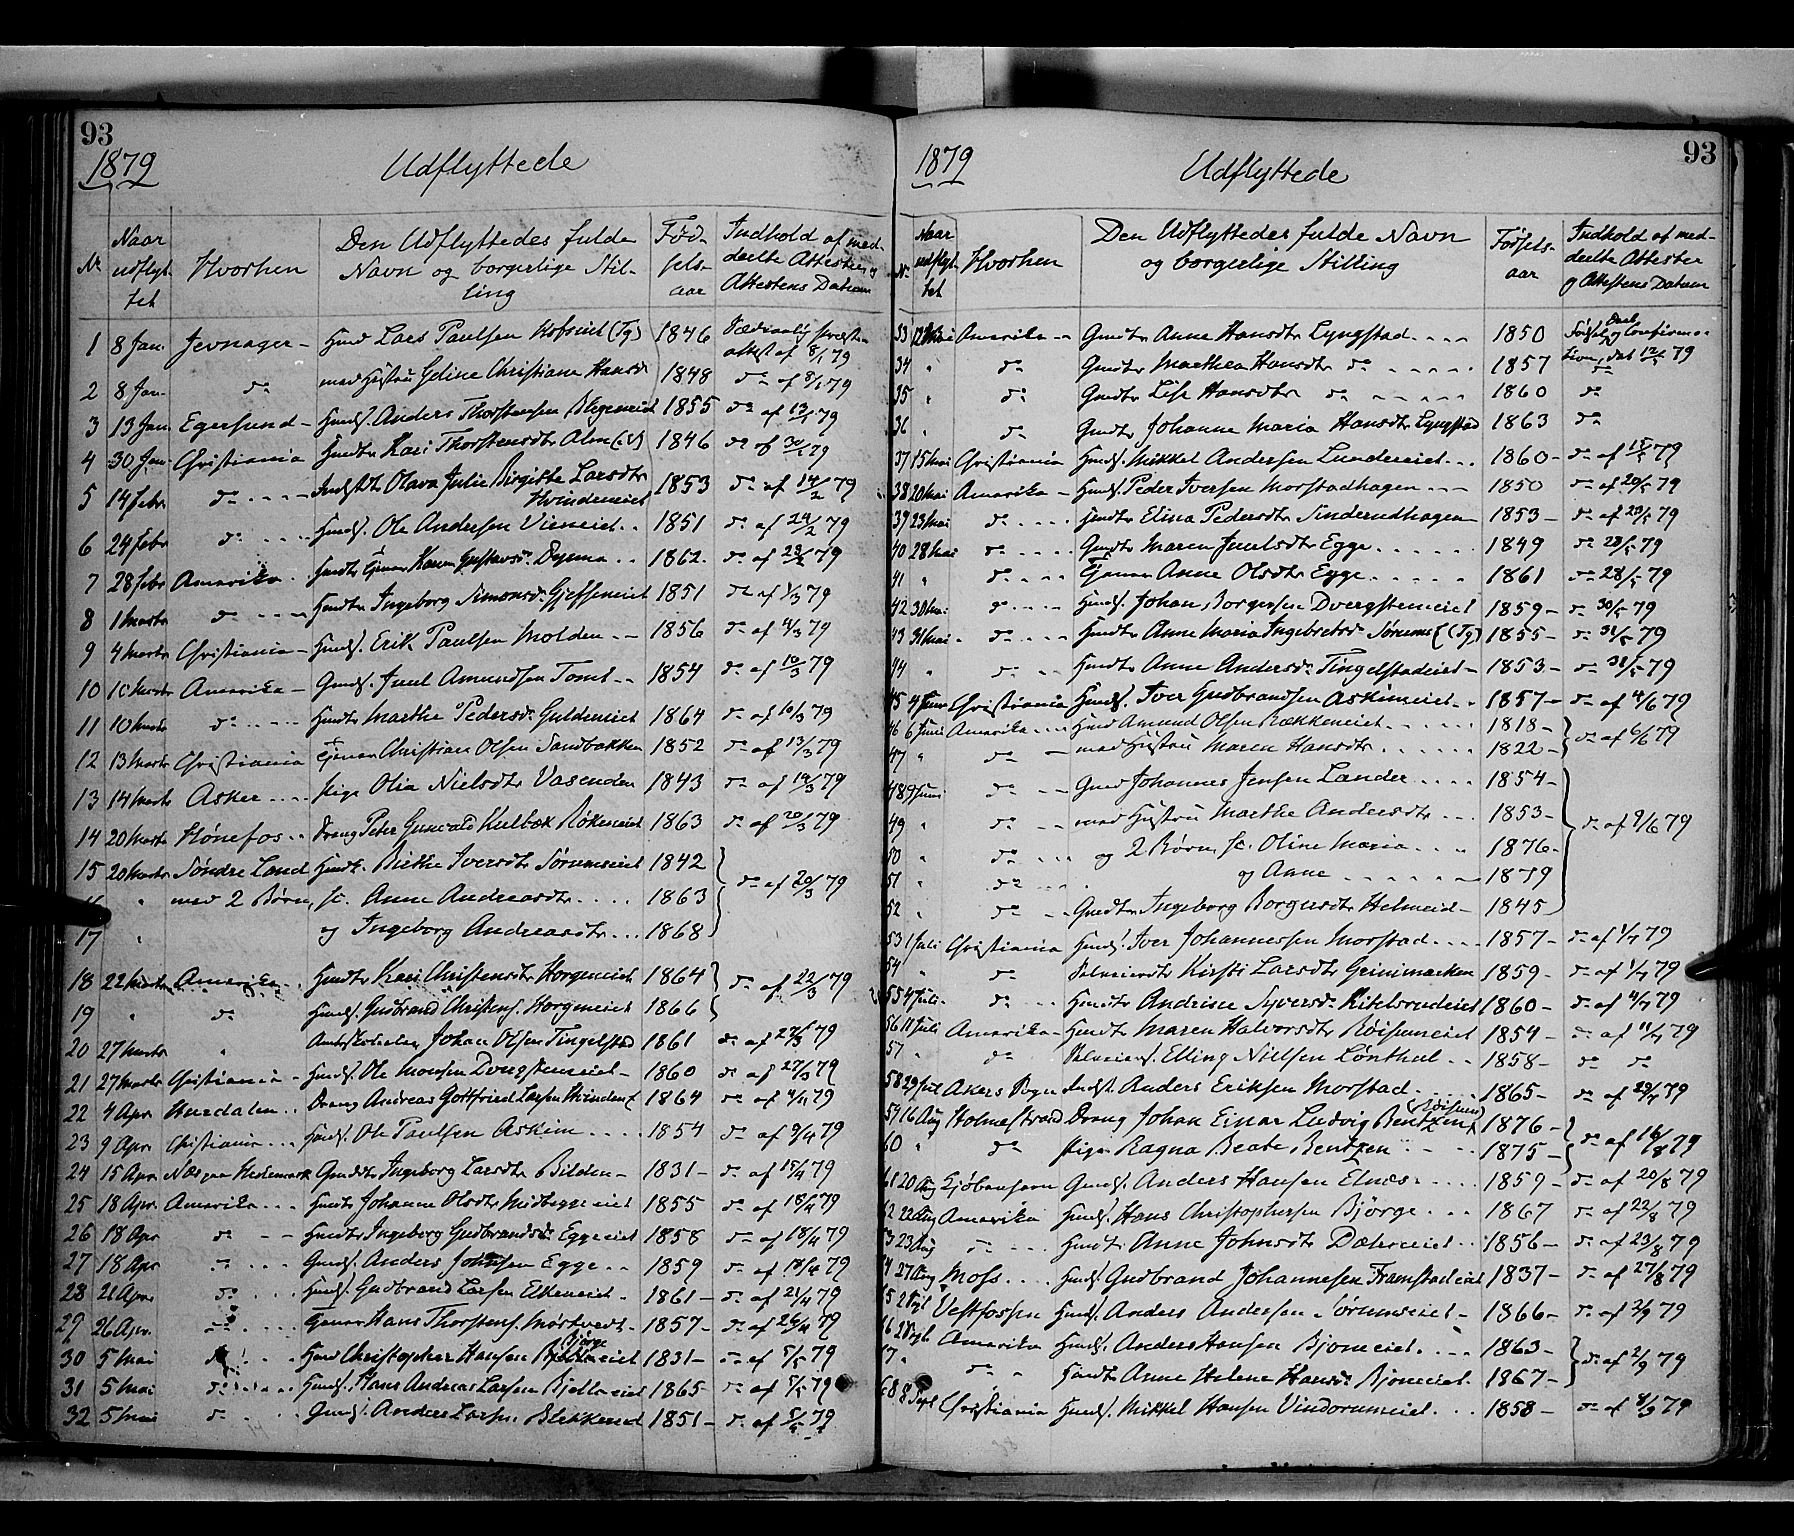 93
1879 Udflyttede
No Naar udflyttet Hvorhen Den Udflyttedes fulde Navn og borgerlige Stilling Fødselsaar Indhold af meddeelte Attester og Attestens Datum
1 8 Jan. Jevnager - Hmd Lars Paulsen (Tg) 1846 af 8/1 79
2 8 Jan. do med Hustru Christiane Hansd 1848 do af 8/1 79
3 13 Jan Egersund - Hmds. Anders Thorstensen 1855 do af 13/1 79
4 30 Jan Christiania Hmdtr Kari Thorstensdtr Alm 1846 do af 30/1 79
5 14 Febr do Olava Julie Birgitte Larsdtr Hvindeneiet 1853 do af 14/2 79
6 24 Febr do Hmds. Ole Andersen Vieneiet 1851 do af 24/2 79
7 28 Febr Amerika Hmdtr Karen Gustavsd. Dynna 1862 do af 28/2 79
8 1 Marts do Hmdtr Ingeborg Simonsd. 1851 do af 1/3 79
9 4 Marts Christiania - Hmds. Erik Paulsen Molden 1856 do af 4/3 79
10 10 Marts Amerika - Gmds. Juul Amundsen Tomt 1854 do af 10/3 79
11 10 Marts do Hmdtr Marthe Pedersd. Guldeneiet 1864 do af 10/3 79
12 13 Marts Christiania Christian Olsen Sandbakken 1852 do af 13/3 79
13 14 Marts Asker Pige Olia Nielsdtr Vasenden 1843 do af 14/3 79
14 20 Marts Hønefos Dreng Peter Gunvald Kulbæk Røkeneiet 1863 do af 20/3 79
15 20 Marts Søndre Land Hmdtr. Birthe Iversdtr Sørumseiet 1842
" med 2 Børn, sc. Anne Andreasdtr 1863 do af 20/3 79
17 " og Ingeborg Andreasdtr 1868
18 22 Marts Amerika Hmdtr Kari Christensdtr Horgeneiet 1864 do af 22/3 79
19 " do Hmds. Gudbrand Christens. Horgeneiet 1866
20 27 Marts " Johan Olsen Tingelstad 1861 do af 27/3 79
21 27 Marts Christiania - Hmds. Ole Monsen 1860 do af 27/3 79
22 4 Apr Hurdalen Dreng Andreas Gottfried Larsen Hvinden 1864 do af 4/4 79
23 9 Apr Christiania Hmds. Ole Paulsen Askim 1854 do af 9/4 79
24 15 Apr Næs paa Hedemark Gmdtr Ingeborg Larsdtr Bilden - 1831 - do af 15/4 79
25 18 Apr. Amerika Hmdtr Johanne Olsdtr Midteggeeiet 1855 do af 18/4 79
26 18 Apr do Hmdtr Ingeborg Gudbrandsd. Eggeeiet 1858 do af 18/4 79
27 18 Apr do Gmds. Anders Johnsen Egge 1859 do af 18/4 79
28 21 Apr. do Hmds. Gudbrand Larsen 1861 - do af 21/4 79
29 26 Apr. do Hans Thorstens. 1857 - do af 26/4 79
30 5 Mai do Hmd Christopher Hansen Bjørgeeiet 1831 - do af 5/5 79
31 5 Mai do Hmds. Hans Andreas Larsen 1865 - do af 5/5 79
32 5 Mai do Gmds. Anders Larsen Blekkerud 1851 - do af 5/5 79
93
1879 Udflyttede
No Naar udflyttet Hvorhen Den Udflyttedes fulde Navn og borgerlige Stilling Fødselsaar Indhold af meddeelte Attester og Attestens Datum
33 12 Mai Amerika - Gmdtr Anne Hansdtr Lyngstad 1850 Fødsel, Daab og Confirma-
34 " do Gmdtr Marthea Hansdtr do 1857 tion, dat 12/5 79
35 " do Gmdtr Lise Hansdtr do 1860 do
36 " do Gmdtr Johanne Maria Hansdtr Lyngstad 1863 do
37 15 Mai Christiania Hmds. Mikkel Andersen Lundeneiet 1860 - do af 15/5 79
38 20 Mai Amerika - Hmds. Peder Iversen Morstadhagen 1850 do af 20/5 79
39 23 Mai do Hmdtr Elina Pedersdtr 1853 - do af 23/5 79
40 28 Mai do Gmdtr Maren Juulsdtr Egge 1849 do 28/5 79
41 " do Anne Olsdtr Egge 1861 do 28/5 79
42 30 Mai do Hmds. Johan Borgersen Dvergsteneiet 1859 - do 30/5 79
43 31 Mai do Hmdtr Anne Maria Ingebretsd. Sørums (Tg) 1855 - do 31/5 79
44 " do Hmdtr Anne Andersd. Tingelstadeiet - 1853 - do 31/5 79
45 4 Juni Christiania Hmds. Iver Gudbrandsen Askimeiet 1857 - do af 4/6 79
46 6 Juni Amerika Hmd Amund Olsen Rækkeneiet 1818 -
47 " do med Hustru Maren Hansdtr 1822 - do af 6/6 79
48 9 Juni do Gmd Johannes Jensen Lander 1854 -
49 " do med Hustru Marthe Andersdtr 1853 -
50 " do og 2 Børn, sc. Oline Maria 1876 - do af 9/6 79
51 do og Anne 1879
52 " do Gmdtr Ingeborg Borgersdtr Helmeid - 1845
53 1 Juli Christiania Hmds. Iver Johannessen Morstad 1857 - do af 1/7 79
54 " do Selveierdtr Kirsti Larsdtr Grinimarken 1859 - do af 1/7 79
55 4 Juli do Hmdtr Andrine Syversd. Kittelsrudeiet 1860 - do af 4/7 79
56 11 Juli Amerika - Hmdtr Maren Halvorsdtr Røisumeiet 1854 - do af 11/7 79
57 " do Selveiers. Elling Nielsen Lønthul 1858 - do do
58 29 Juli Akers Sogn Inds. Anders Eriksen Morstad 1865 - do af 29/7 79
59 16 Aug Holmestrand Dreng Johan Einar Ludvig Bentzen (Røisum) 1876 -
60 " do Pige Ragna Beate Bentzen 1875 - do af 16/8 79
61 20 Aug Kjøbenhavn Gmds. Anders Hansen Elnæs 1859 - do af 20/8 79
62 22 Aug Amerika Hmds. Hans Christophersen Bjørge 1867 do af 22/8 79
3 23 Aug do Hmdtr Anne Johnsdtr 1856 - do af 23/8 79
4 27 Aug Moss Hmds. Gudbrand Johannesen Framstadeiet 1837 - do af 27/8 79
5 2 Spt Vestfossen Hmds. Anders Andersen Sørumseiet - 1866 - do af 2/9 79
16 2 Sept. Amerika Hmds. Anders Hansen Bjoneiet 1863 -
17 " do Hmdtr Anne Helene Hansd. Bjoneiet 1867 - do af 2/9 79
68 8 Sept Christiania Hmds. Mikkel Hansen Vindorumeiet 1858 - do af 8/9 79